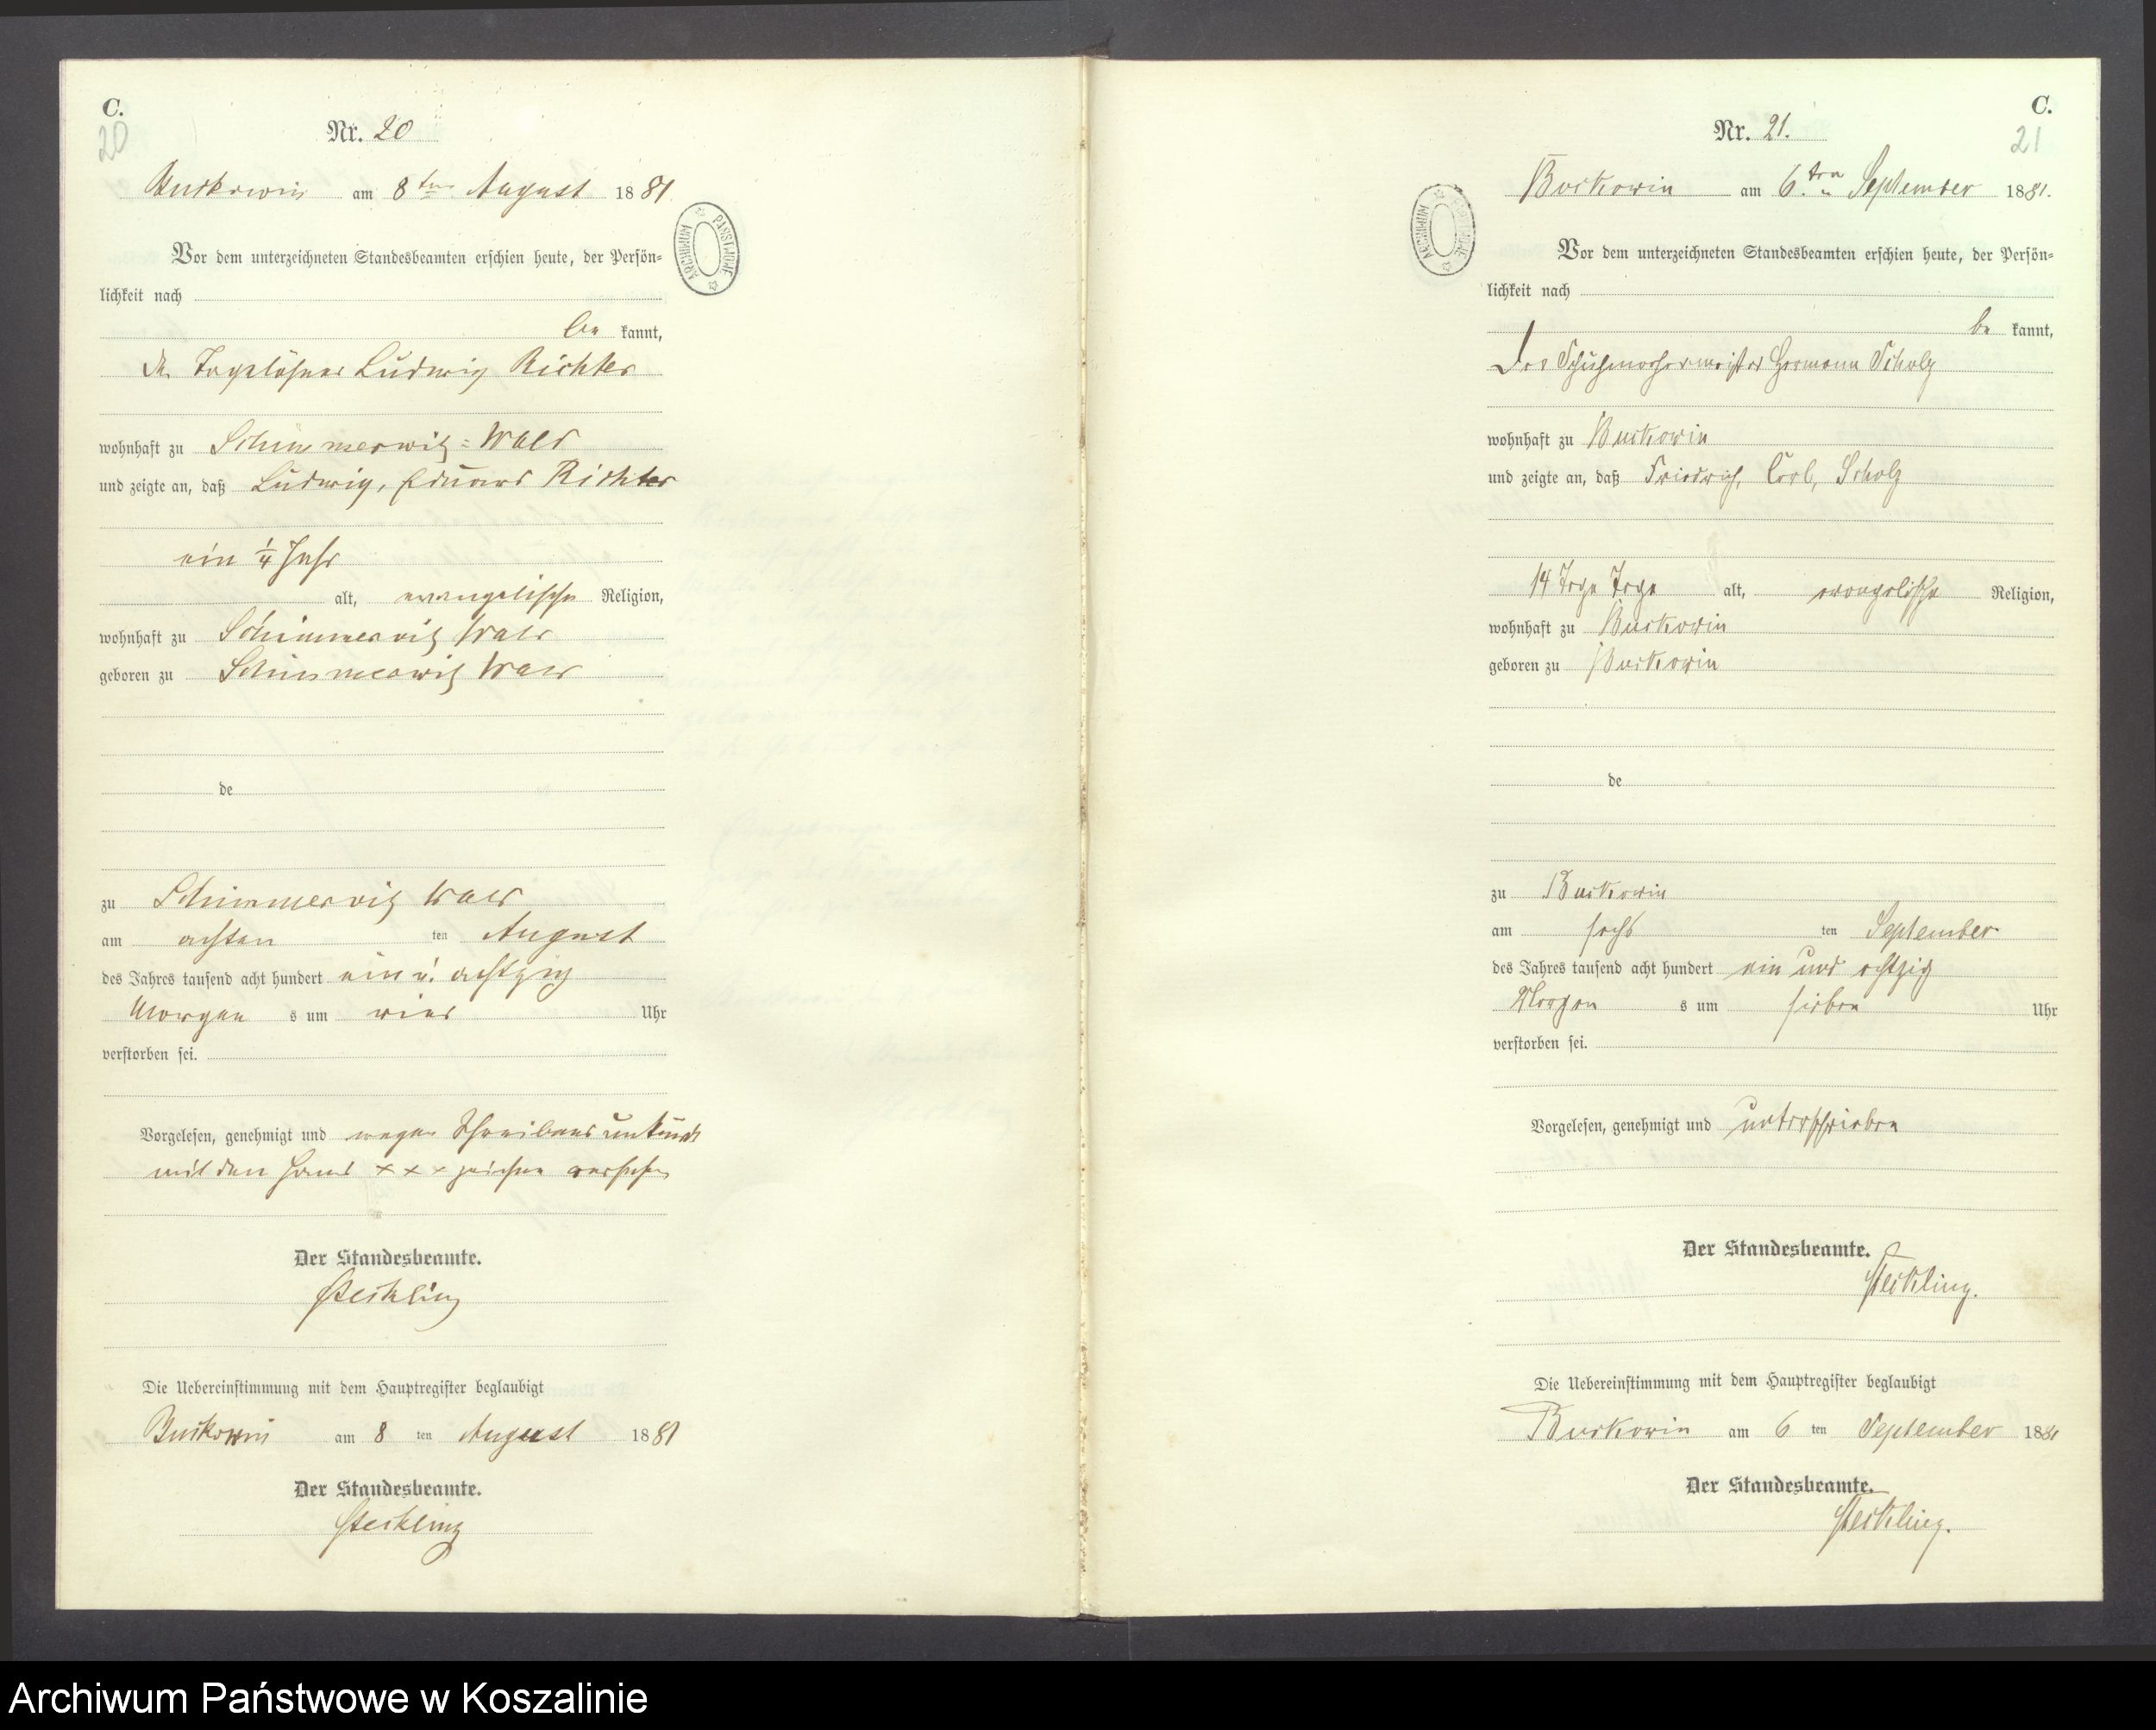 C.
20
Nr. 20
Buckowin am 8ten August 1881
ARCHIWUM PAŃSTWOWE
Vor dem unterzeichneten Standesbeamten erschien heute, der Persön-
lichkeit nach
be kannt,
der Tagelöhner Ludwig Richter
wohnhaft zu Schimmerwitz-Wald
und zeigte an, daß Ludwig, Eduard Richter
ein 1/4 Jahr
alt, evangelische Religion,
wohnhaft zu Schimmerwitz Wald
geboren zu Schimmerwitz Wald
de
zu Schimmerwitz Wald
am achten ten August
des Jahres tausend acht hundert ein u. achtzig
Morgen s um vier Uhr
verstorben sei.
Vorgelesen, genehmigt und wegen Schreibens unkund
mit den Hand x x x zeichen versehen
Der Standesbeamte.
Steckling
Die Uebereinstimmung mit dem Hauptregister beglaubigt
Buckowin am 8 ten August 1881
Der Standesbeamte.
Steckling
C.
21
Nr. 21.
Buckowin am 6.ten September 1881.
ARCHIWUM PAŃSTWOWE
Vor dem unterzeichneten Standesbeamten erschien heute, der Persön-
lichkeit nach
be kannt,
der Schuhmachermeister Hermann Scholz
wohnhaft zu Buckowin
und zeigte an, daß Friedrich, Carl, Scholz
14 Tage Tage alt, evangelische Religion,
wohnhaft zu Buckowin
geboren zu Buckowin
de
zu Buckowin
am sechs ten September
des Jahres tausend acht hundert ein und achtzig
Morgen s um sieben Uhr
verstorben sei.
Vorgelesen, genehmigt und unterschrieben
Der Standesbeamte.
Steckling.
Die Uebereinstimmung mit dem Hauptregister beglaubigt
Buckowin am 6 ten September 1881
Der Standesbeamte.
Steckling.
Archiwum Państwowe w Koszalinie